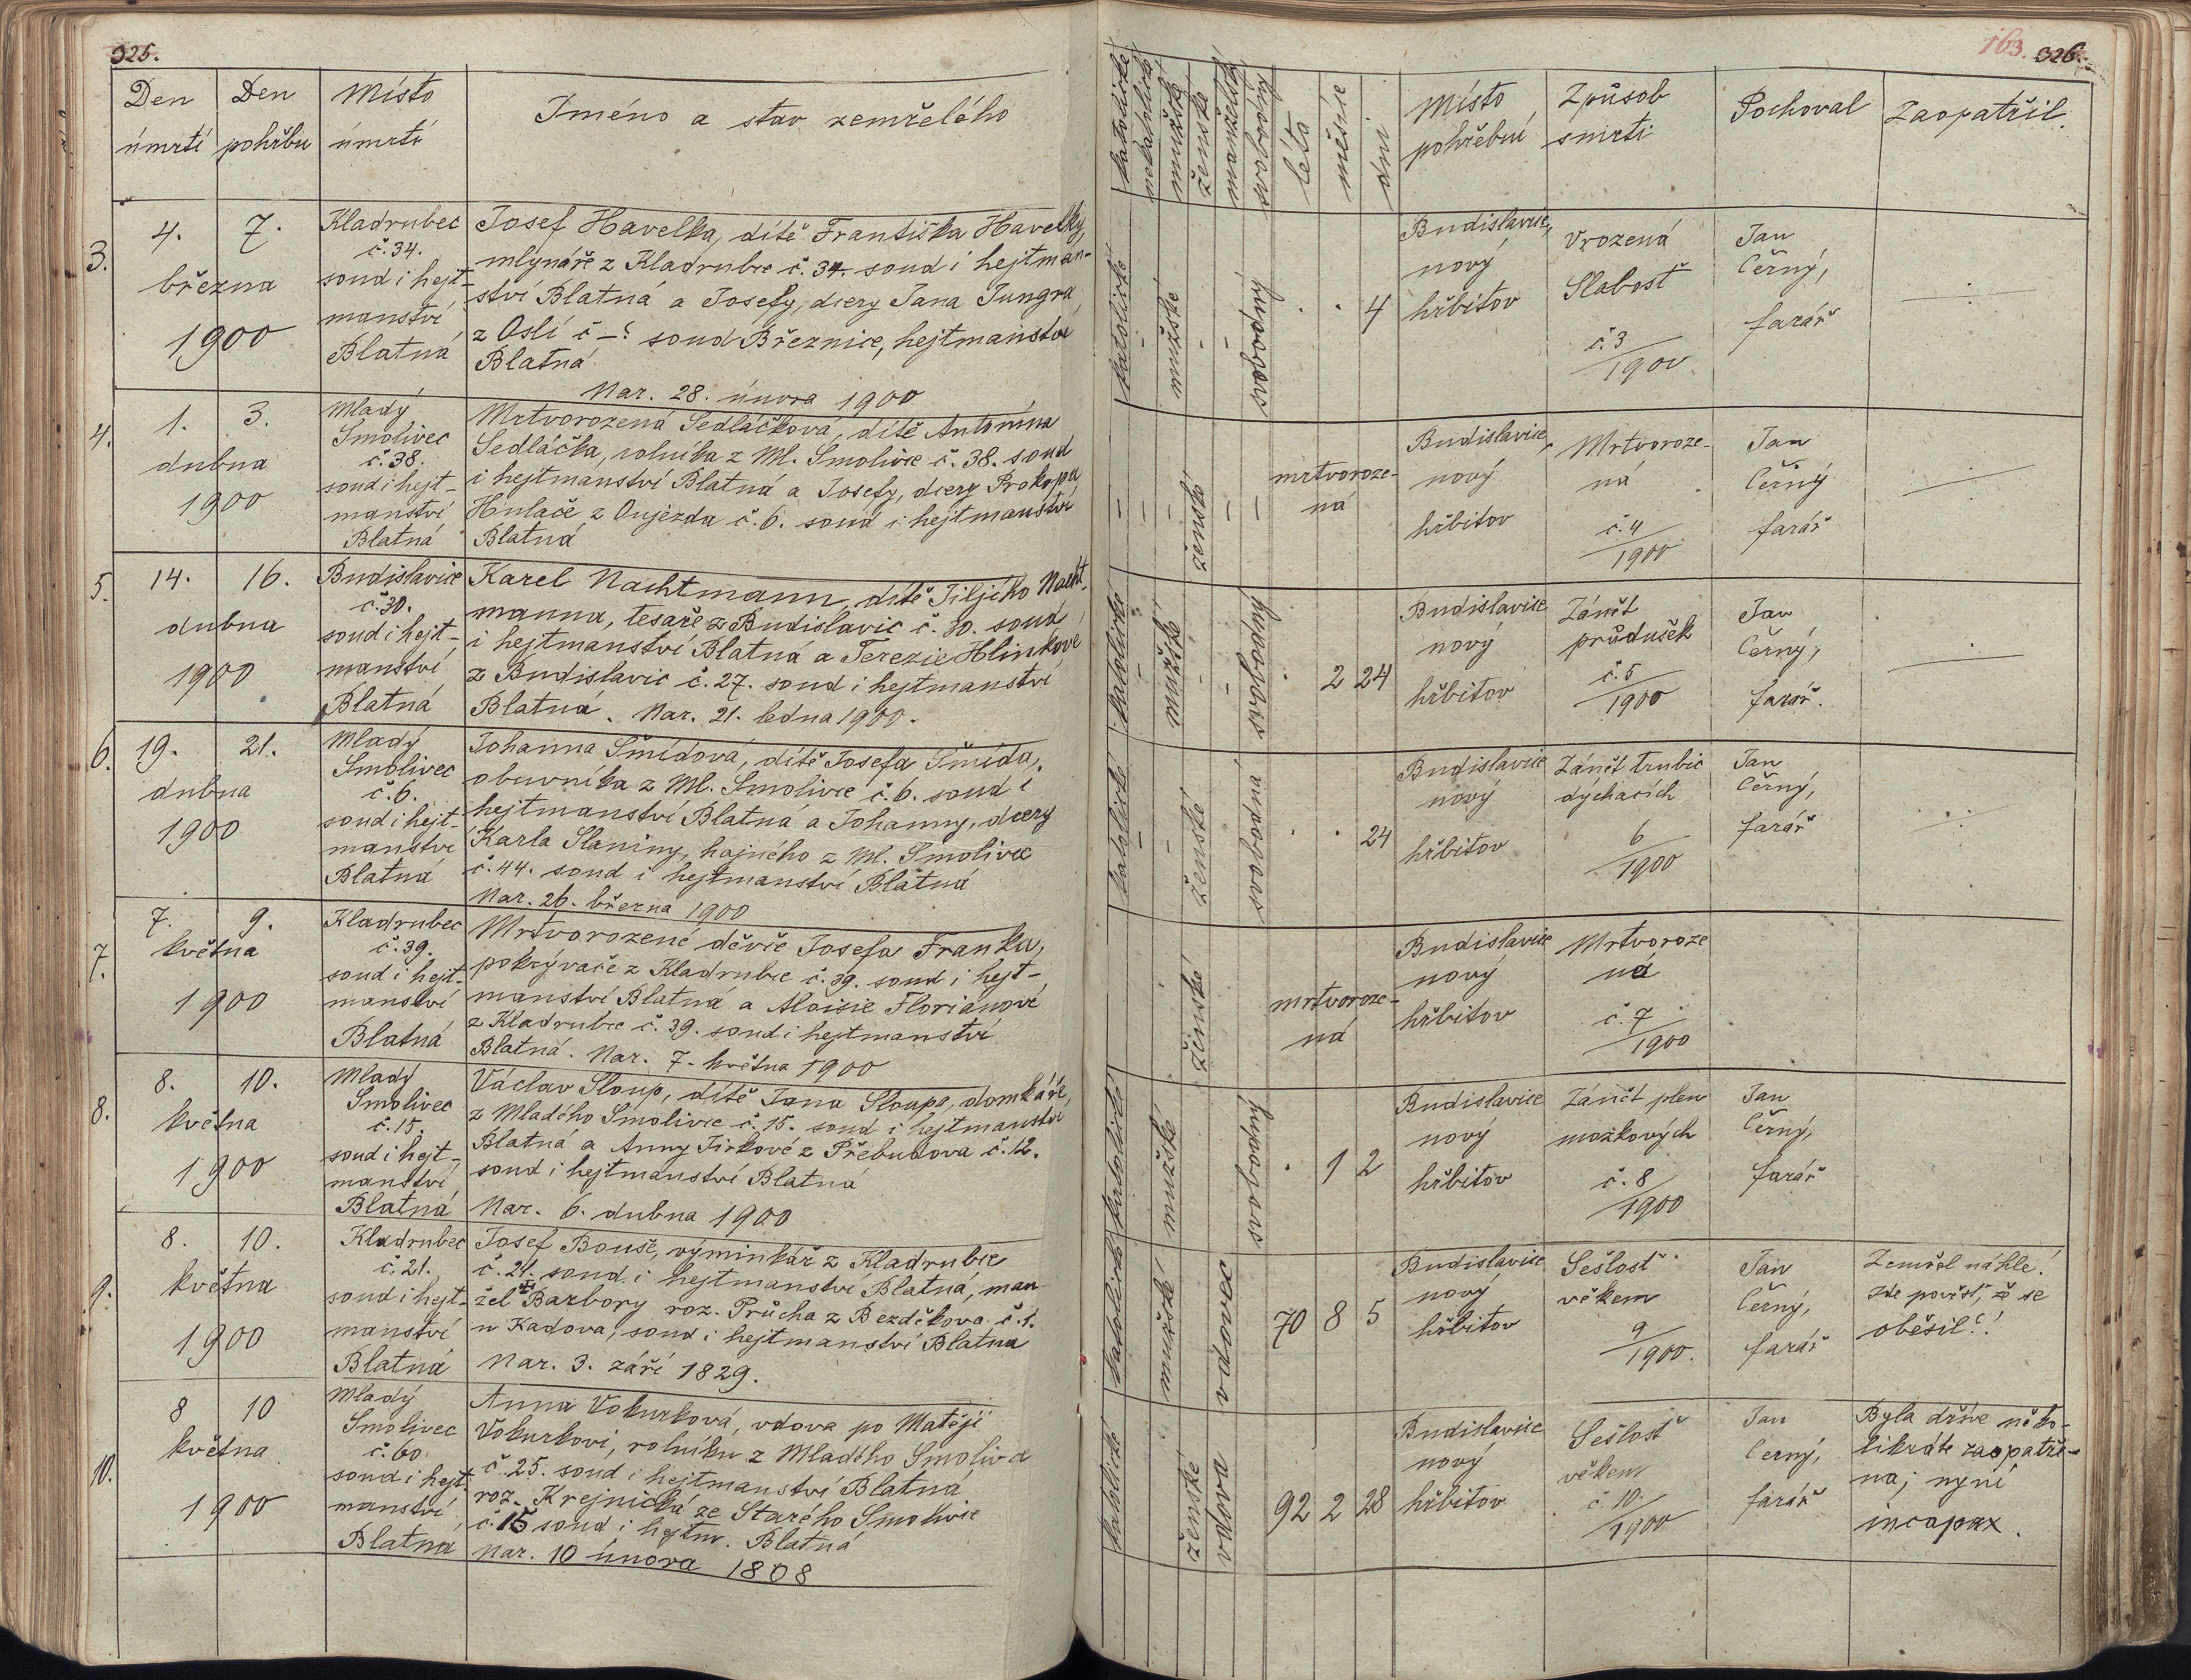 325.
Den
úmrtí
Den
pohřbu
Místo
úmrtí
Jméno a stav zemřelého
3.
4. 7.
března
1900
Kladrubec
č. 34.
soud i hejt-
manství
Blatná
Josef Havelka, dítě Františka Havelky,
mlynáře z Kladrubce č. 34. soud i hejtman-
ství Blatná a Josefy, dcery Jana Jungra
z Oslí č –? soud Březnice, hejtmanství
Blatná
Nar. 28. února 1900
4.
1. 3.
dubna
1900
Mladý
Smolivec
č. 38.
soud i hejt-
manství
Blatná
Mrtvorozená Sedláčková, dítě Antonína
Sedláčka, rolníka z Ml. Smolivce č. 38. soud
i hejtmanství Blatná a Josefy, dcery Prokopa
Hulače z Oujezda č. 6. soud i hejtmanství
Blatná
5.
14. 16.
dubna
1900
Budislavice
č. 30.
soud i hejt-
manství
Blatná
Karel Nachtmann, dítě Jiljího Nacht-
manna, tesaře z Budislavic č. 30. soud
i hejtmanství Blatná a Terezie Hlinkové
z Budislavic č. 27. soud i hejtmanství
Blatná. Nar. 21. ledna 1900.
6.
19. 21.
dubna
1900
Mladý
Smolivec
č. 6.
soud i hejt-
manství
Blatná
Johanna Šmídová, dítě Josefa Šmída,
obuvníka z Ml. Smolivce č. 6. soud i
hejtmanství Blatná a Johanny, dcery
Karla Slaniny, hajného z Ml. Smolivce
č. 44. soud i hejtmanství Blatná
Nar. 26. března 1900
7.
7. 9.
května
1900
Kladrubec
č. 39.
soud i hejt-
manství
Blatná
Mrtvorozené děvče Josefa Franka,
pokrývače z Kladrubce č. 39. soud i hejt-
manství Blatná a Aloisie Floriánové
z Kladrubce č. 39. soud i hejtmanství
Blatná. Nar. 7. května 1900
8.
8. 10.
května
1900
Mladý
Smolivec
č. 15.
soud i hejt-
manství
Blatná
Václav Sloup, dítě Jana Sloupa, domkáře,
z Mladého Smolivce č. 15. soud i hejtmanství
Blatná a Anny Jirkové z Přebudova č. 12.
soud i hejtmanství Blatná
Nar. 6. dubna 1900
9.
8. 10.
května
1900
Kladrubec
č. 21.
soud i hejt-
manství
Blatná
Josef Bouše, výminkář z Kladrubce
č. 21. soud i hejtmanství Blatná, man
žel + Barbory roz. Průcha z Bezděkova č. 1.
u Kadova, soud i hejtmanství Blatná
Nar. 3. září 1829.
10.
8 10
května
1900
Mladý
Smolivec
č. 60.
soud i hejt.
manství
Blatná
Anna Vokurková, vdova po Matěji
Vokurkovi, rolníku z Mladého Smolivce
č. 25. soud i hejtmanství Blatná,
roz. Krejnická ze Starého Smolivce
č. 15 soud i hejtm. Blatná
Nar. 10 února 1808
163. 326.
katolické
nekatolické
mužské
ženské
manželské
svobodný
léta
měsíce
dni
Místo
pohřební
Způsob
smrti
Pochoval
Zaopatřil
katolické
mužské
svobodný
4
Budislavice,
nový
hřbitov
Vrozená
Slabosť
č. 3
1900
Jan
Černý,
farář
ženské
mrtvoroze-
ná
Budislavice,
nový
hřbitov
Mrtvoroze-
ná
č. 4
1900
Jan
Černý
farář
katolické
mužské
svobodný
2 24
Budislavice
nový
hřbitov
Zánět
průdušek
č. 5
1900
Jan
Černý,
farář.
katolické
ženské
svobodná
24
Budislavice
nový
hřbitov
Zánět trubic
dýchacích
6
1900
Jan
Černý,
farář
ženské
mrtvoroze-
ná
Budislavice
nový
hřbitov
Mrtvoroze
ná
č. 7
1900
katolické
mužské
svobodný
1 2
Budislavice
nový
hřbitov
Zánět plen
mozkových
č. 8
1900
Jan
Černý,
farář
katolické
mužské
vdovec
70 8 5
Budislavice
nový
hřbitov
Sešlosť
věkem
9
1900.
Jan
Černý,
farář
Zemřel náhle!
Zde pověst, že se
oběsil?!
katolické
ženské
vdova
92 2 28
Budislavice
nový
hřbitov
Sešlosť
věkem
č. 10.
1900
Jan
Černý,
farář
Byla dříve něko-
likráte zaopatře-
na; nyní
incapax.